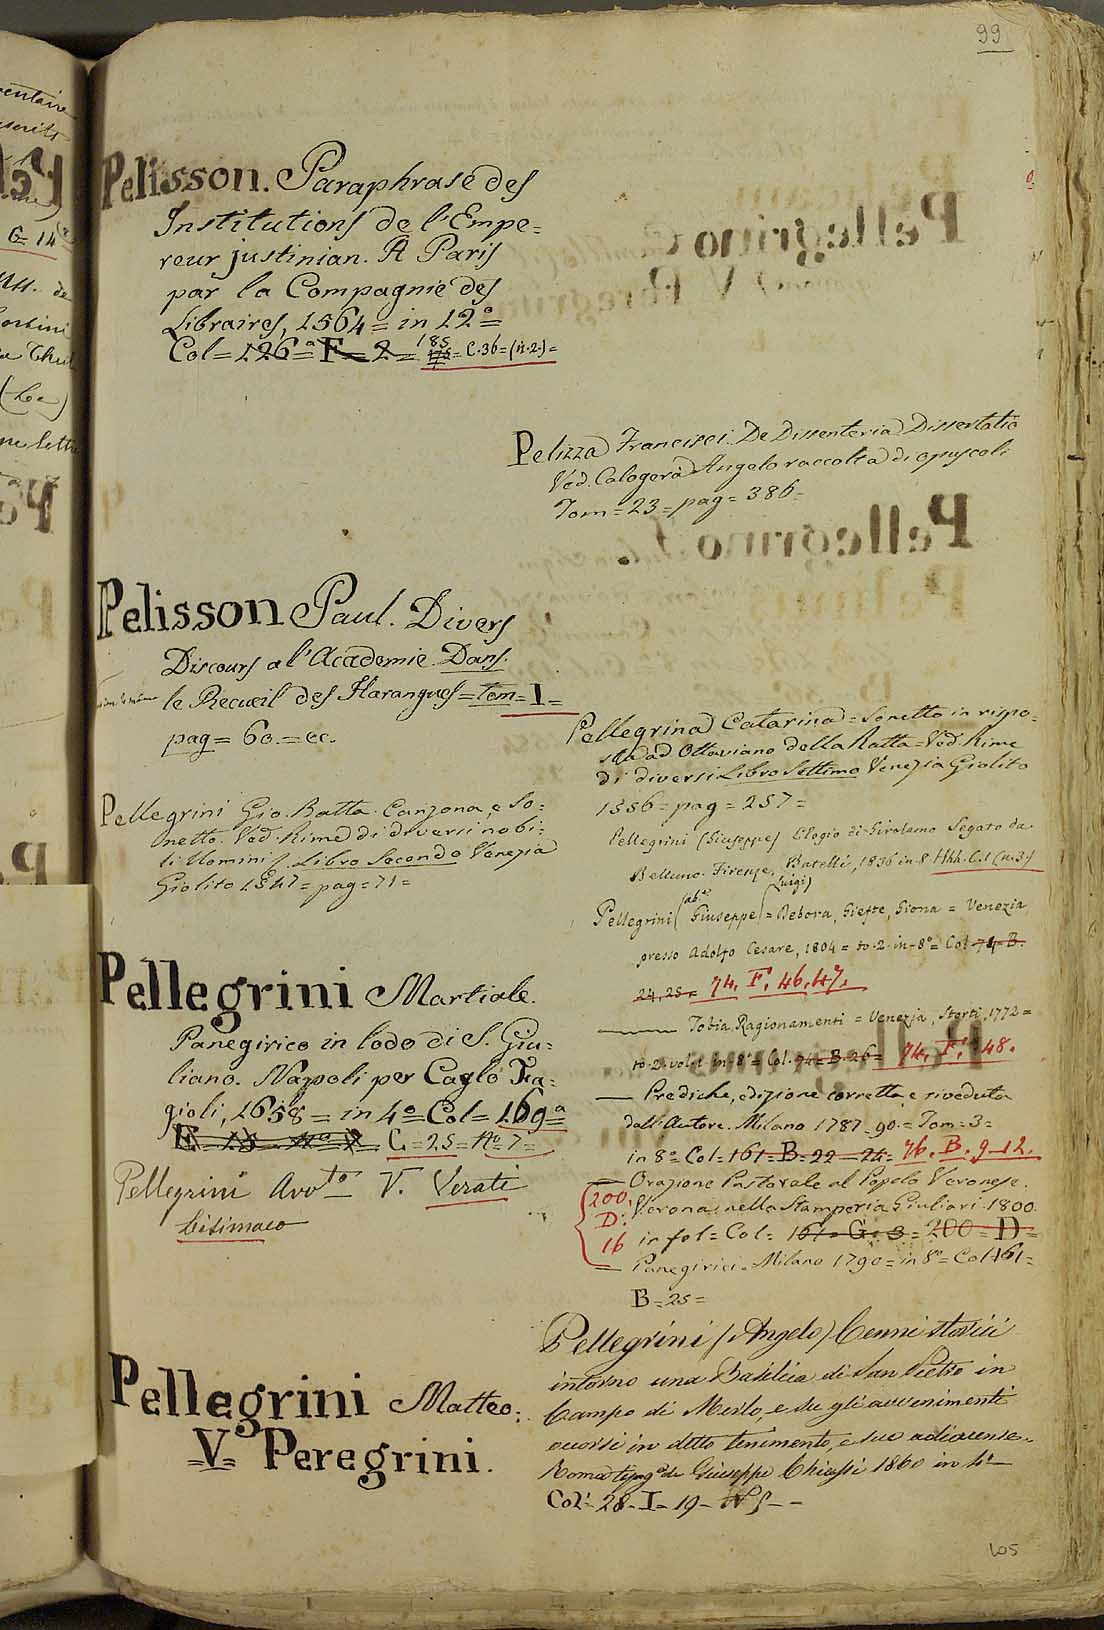 99
Pelisson. Paraphrase des
Institutions de l'Empe=
reur justinian. A Paris
par la Compagnie des
Libraires, 1564 = in 12°=
Col = 126ª= F = 2 = 185 = C.36 = (n.2.) =
Pelizza Francisci. De Dissenteria Dissertatio
Ved. Calogerà Angelo raccolta di opuscoli
Tom = 23 = pag = 386 =
Pelisson Paul. Divers
Discours a l'Academie. Dans.
le Recueil des Harangues = tom = I =
pag = 60. = ec.
Pellegrini Gio. Batta. Canzona, e So=
netto. Ved. Rime di diversi nobi=
li Uomini. Libro Secondo Venezia
Giolito 1547 = pag = 71 =
Pellegrini Martiale.
Panegirico in lodo di S. Giu=
liano. Napoli per Carlo Fa=
gioli, 1658 = in 4°= Col = 169ª
C = 25 = N° 7 =
Pellegrini Avvto V. Verati
Lisimaco
Pellegrini Matteo:
=V= Peregrini.
Pellegrina Catarina = Sonetto in rispo=
sta ad Ottaviano della Ratta = Ved. Rime
di diversi Libro Settimo Venezia Giolito
1556 = pag = 257 =
Pellegrini (Giuseppe) Elogio di Girolamo Segato da
Belluno. Firenze, Batelli, 1836 in 8. Hhh. C.1 (n.3)
(Luigi)
Pellegrini (ab.e Giuseppe) = Debora, Giefte, Giona = Venezia,
presso Adolfo Cesare, 1804 = to. 2. in-8°= Col. 74-B.
24, 25 = 74. F. 46.47.
Tobia, Ragionamenti = Venezia, Storti, 1772 =
to. 2. vol. 1 in 8° = Col. 74 = B. 26 = 74. F. 48.
— Prediche, edizione corretta, e riveduta
dall'Autore. Milano 1787-90. = Tom = 3 =
in 8° Col = 161 = B = 22 — 24 = 76. B. 9-12.
— Orazione Pastorale al Popolo Veronese.
Verona, nella Stamperia Giuliari. 1800.
200.
D.
16
in fol = Col = 161 = G = 3 = 200 = D =
— Panegirici. Milano 1790 = in 8° = Col 161 =
B = 25 =
Pellegrini (Angelo) Cenni storici
intorno una Basilica di San Pietro in
Campo di Merlo, e su gli avvenimenti
occorsi in detto tenimento, e sue adiacenze.
Roma tipog.ª di Giuseppe Chiassi 1860 in 4°
Col: 28 - I - 19 -
605